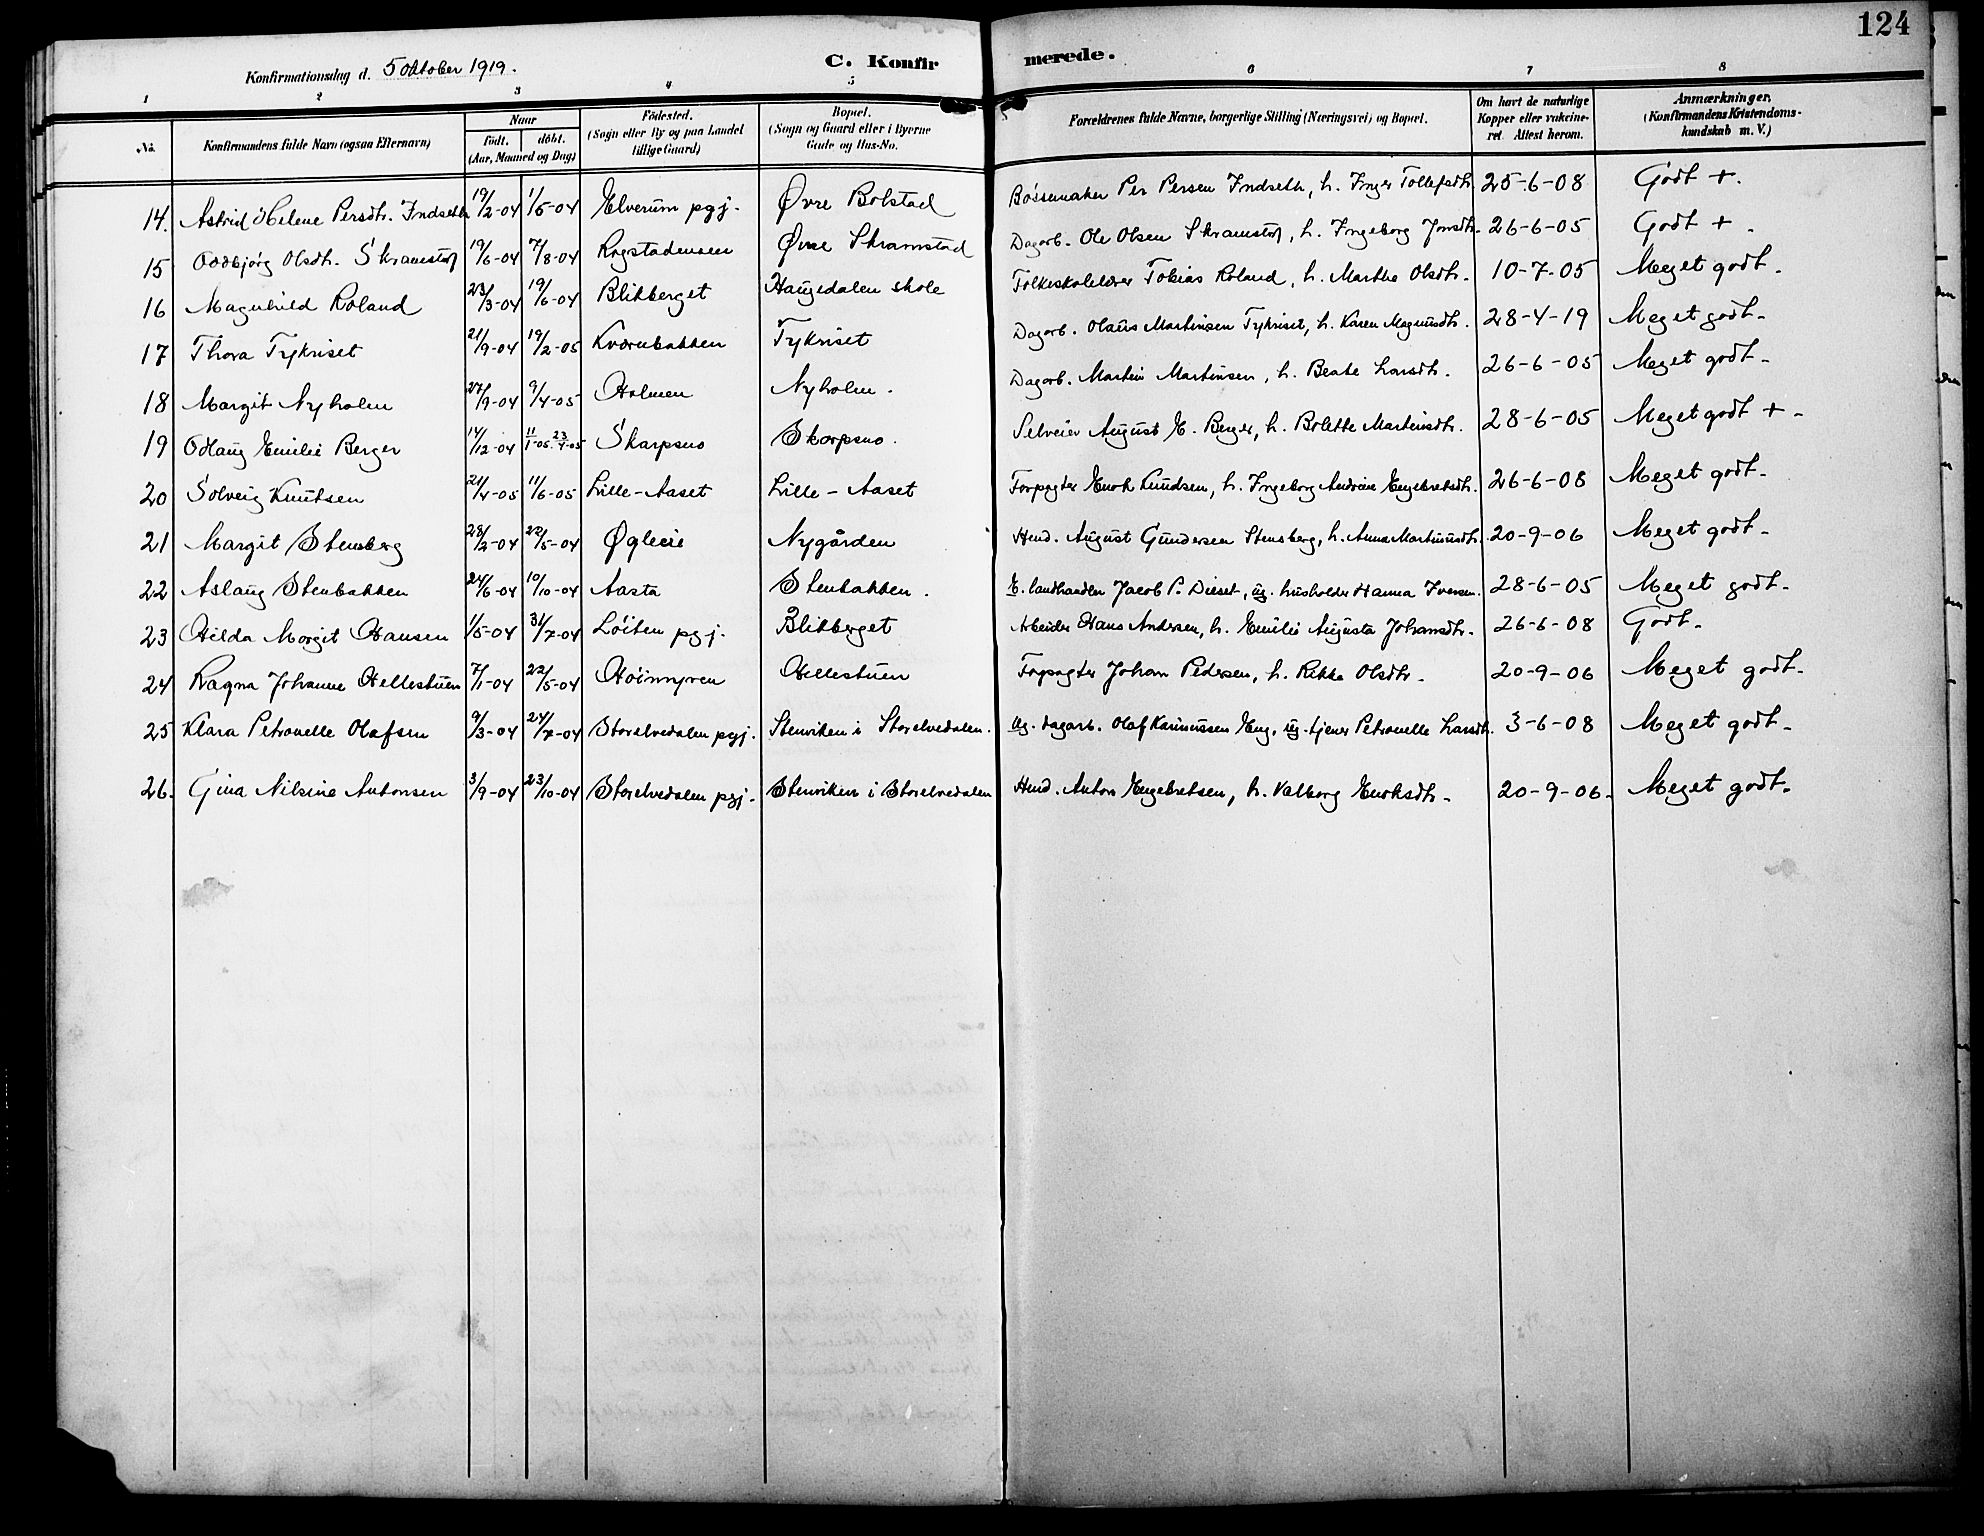 124
Konfirmationsdag d. 5 oktober 1919.
C. Konfirmerede.
1 2 3 4 5 6 7 8
No. Konfirmandens fulde Navn (ogsaa Efternavn) Naar født. døbt. (Aar, Maaned og Dag) Fødested. (Sogn eller By og paa Landet tillige Gaard) Bopæl. (Sogn og Gaard eller i Byerne Gade og Hus-No. Forældrenes fulde Navne, borgerlige Stilling (Næringsvei) og Bopæl. Om havt de naturlige Kopper eller vakcineret. Attest herom. Anmærkninger. (Konfirmandens Kristendomskundskab m. V.)
14. Astrid Helene Persdtr. Indseth 19/2-04 1/5-04 Elverum pgj. Øvre Bolstad Bøssemaker Per Persen Indseth, h. Inger Tollefsdtr. 25-6-08 Godt +.
15 Oddbjørg Olsdtr. Skramstad 19/6-04 7/8-04 Rogstadenseen Øvre Skramstad Dagarb. Ole Olsen Skramstad, h. Ingeborg Jonsdtr. 26-6-05 Godt +.
16 Magnhild Roland 23/3-04 19/6-04 Blikberget Haugedalen skole Folkeskolelærer Tobias Roland, h. Marthe Olsdtr. 10-7-05 Meget godt.
17 Thora Tykriset 21/9-04 19/2-05 Kværnbakken Tykriset Dagarb. Olaus Martinsen Tykriset, h. Karen Magnusdtr. 28-4-19 Meget godt.
18 Margit Nyholm 27/9-04 9/4-05 Holmen Nyholm. Dagarb. Martin Martinsen, h. Beate Larsdtr. 26-6-05 Meget godt.
19 Odlaug Emilie Berger 14/12-04 11/1-05. 23/4-05 Skarpsno Skarpsno. Selveier August E. Berger, h. Bolette Martinsdtr. 28-6-05 Meget godt +.
20 Solveig Knutsen 21/4-05 11/6-05 Lille-Aaset Lille-Aaset Forpagter Enok Knudsen, h. Ingeborg Andrine Engebretsdtr. 26-6-08 Meget godt.
21 Margit Stensberg 28/2-04 22/5-04 Øgleie Nygården Hmd. August Gundersen Stensberg, h. Anna Martinusdtr. 20-9-06 Meget godt.
22 Aslaug Stenbakken 24/6-04 10/10-04 Aasta Stenbakken. E. landhandler Jacob P. Dieset, ug. husholder Hanna Iversen. 28-6-05 Meget godt.
23 Hilda Margit Hansen 1/5-04 31/7-04 Løiten pgj. Blikberget Arbeider Hans Andersen, h. Emilie Augusta Johansdtr. 26-6-08 Godt.
24 Ragna Johanne Hellestuen 7/1-04 22/5-04 Høimyren Hellestuen Forpagter Johan Pedersen, h. Rikke Olsdtr. 20-9-06 Meget godt.
25 Klara Petronelle Olafsen 9/3-04 24/7-04 Storelvedalen pgj. Stenviken i Storelvedalen. Ug. dagarb. Olaf Rasmussen Eng, ug. tjener Petronelle Larsdtr. 3-6-08 Meget godt.
26. Gina Nilsine Antonsen 3/9-04 23/10-04 Storelvedalen pgj. Stenviken i Storelvedalen Hmd. Anton Engebretsen, h. Valborg Enoksdtr. 20-9-06. Meget godt.